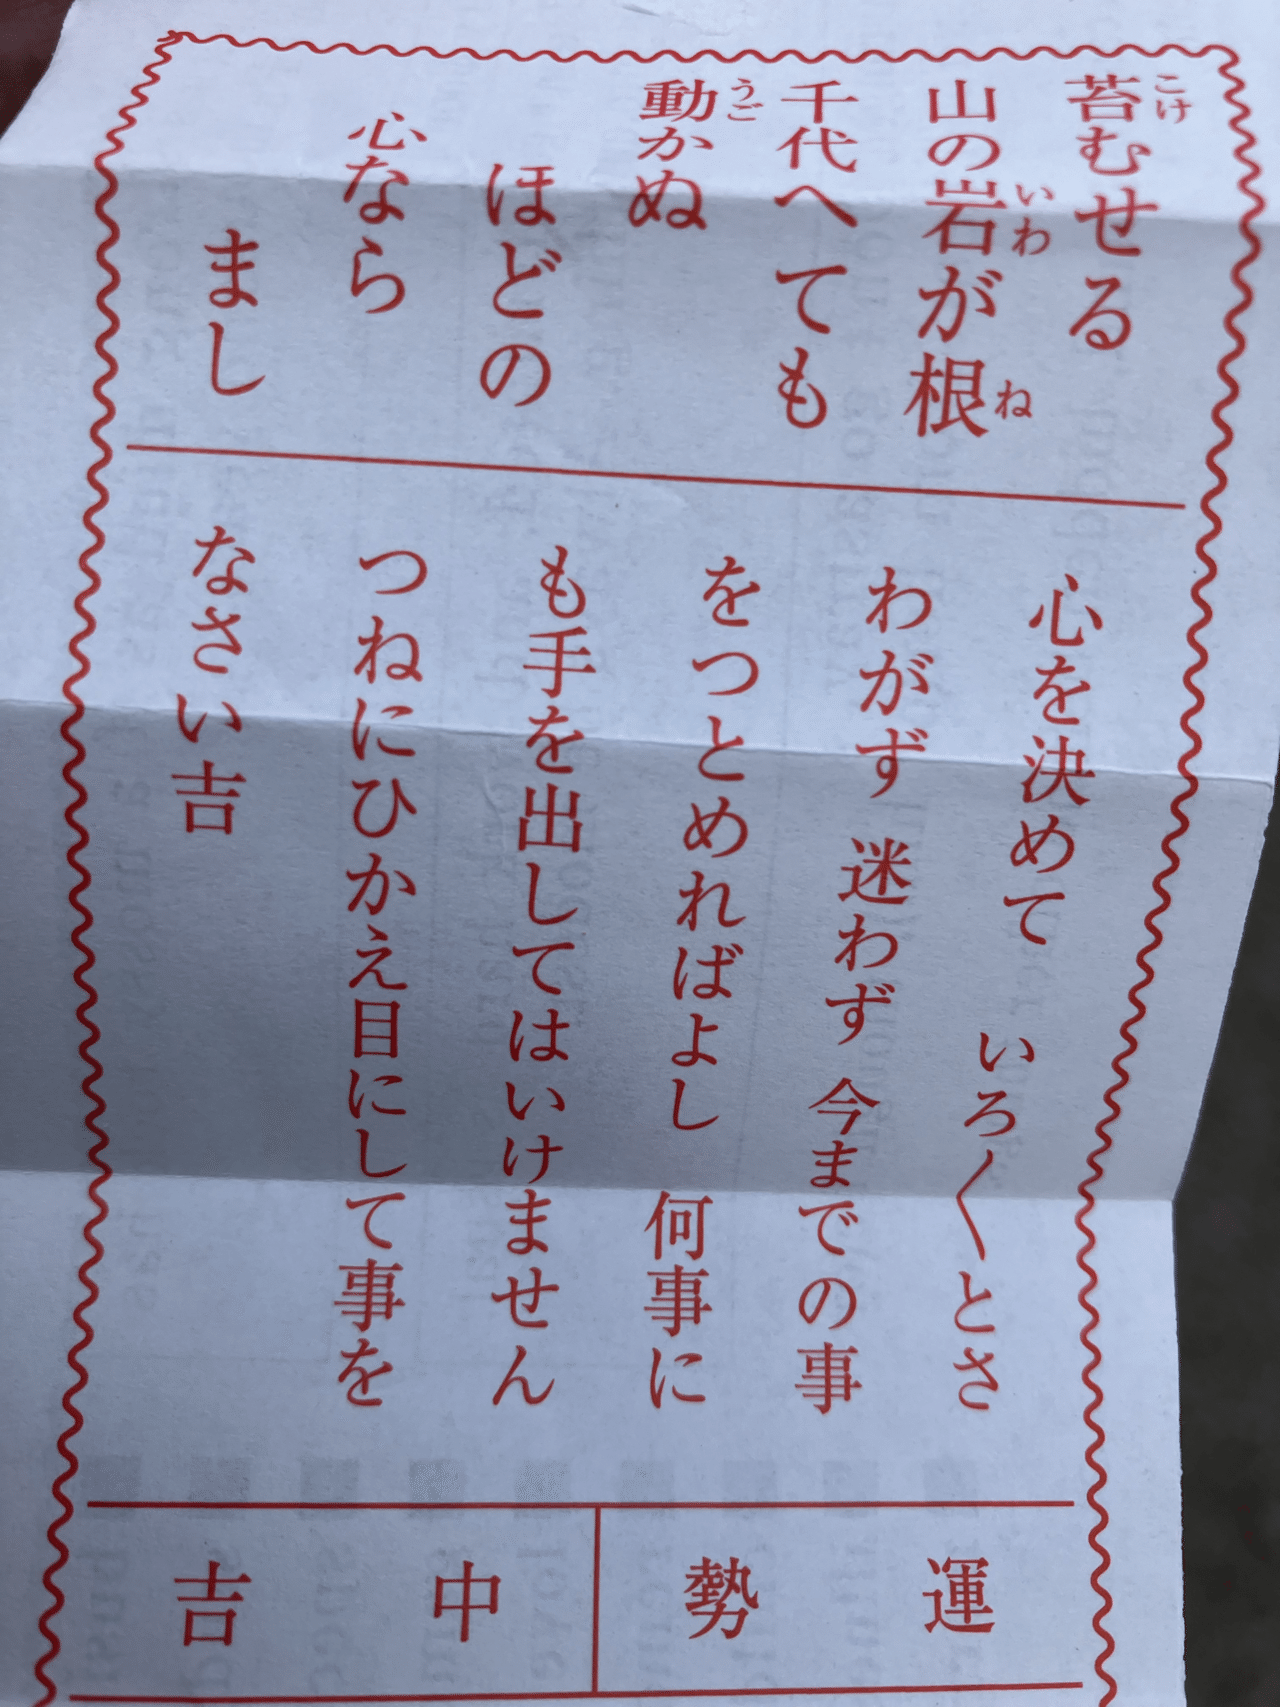 苔むせる
山の岩が根
千代へても
動かぬ
ほどの
心なら
まし
こけ
いわ
ね
うご
心を決めて　いろ〱とさ
わがず　迷わず　今までの事
をつとめればよし　何事に
も手を出してはいけません
つねにひかえ目にして事を
なさい吉
運勢
中吉